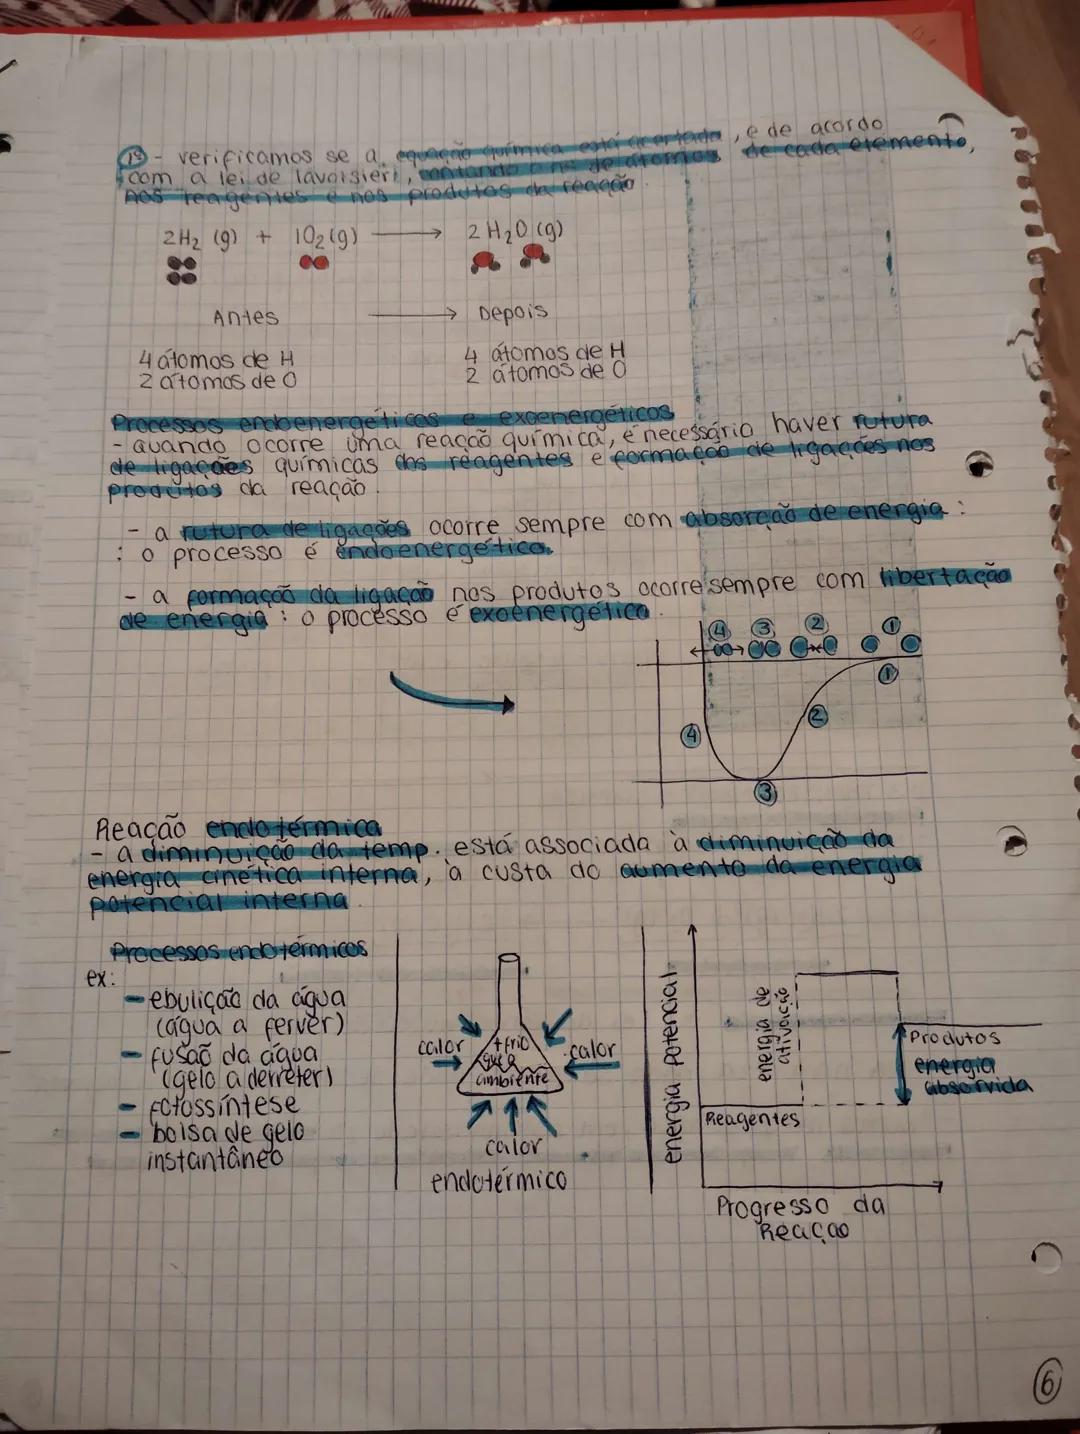 1º - verificamos se a equação química está acertada, e de acordo
com a lei de lavoisier, contando o nº de átomos de cada elemento,
nos reagentes e nos produtos da reação.
2H₂ (g) + 1O₂(g) → 2H₂O (g)
Antes → Depois
4 átomos de H
2 átomos de O
4 átomos de H
2 átomos de O
Processos endoenergéticos e exoenergéticos
- quando ocorre uma reação química, é necessário haver rutura
de ligações químicas dos reagentes e formação de ligações nos
produtos da reação.
- a rutura de ligações ocorre sempre com absorção de energia :
: o processo é endoenergético.
- a formação da ligação nos produtos ocorre sempre com libertação
de energia : o processo é exoenergético.
4 3 2 1
1
2
4
3
Reação endotérmica
- a diminuição da temp. está associada à diminuição da
energia cinética interna, à custa do aumento da energia
potencial interna.
Processos endotérmicos
ex:
- ebulição da água
(água a ferver)
- fusão da água
(gelo a derreter)
- fotossíntese
- bolsa de gelo
instantâneo
calor
+ frio
que o
ambiente
calor
calor
endotérmico
energia potencial
energia de
ativação
Reagentes
Produtos
energia
absorvida
Progresso da
Reação
6